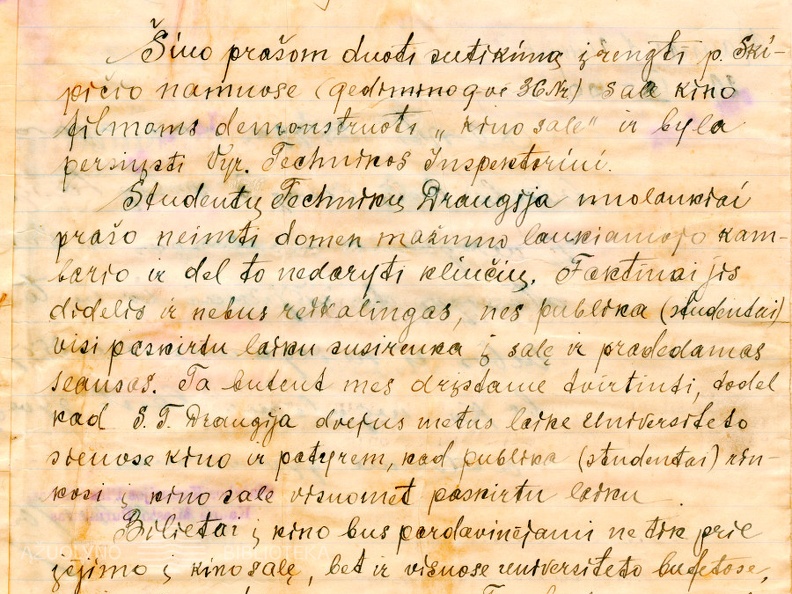 Šiuo prašom duoti sutikimą įrengti p. Ski-
pičio namuose (Gedimino g-vė 36 Nr) salę kino
filmoms demonstruoti „kino salė" ir bylą
persiųsti Vyr. Technikos Inspektoriui.
Studentų Technikų Draugija nuolankiai
prašo neimti domėn mažumo laukiamojo kam-
bario ir dėl to nedaryti kliučių. Faktinai jis
didelis ir nebus reikalingas, nes publika (studentai)
visi paskirtu laiku susirenka į salę ir pradedamas
seansas. Tą butent mes drįstame tvirtinti, todėl
kad S. T. Draugija dvejus metus laikė Universiteto
sienose kino ir patyrėm, kad publika (studentai) rin-
kosi į kino salę visuomet paskirtu laiku.
Bilietai į kino bus pardavinėjami ne tik prie
įėjimo į kino salę, bet ir visuose universiteto bufetose,
AŽUOLYNO BIBLIOTEKA